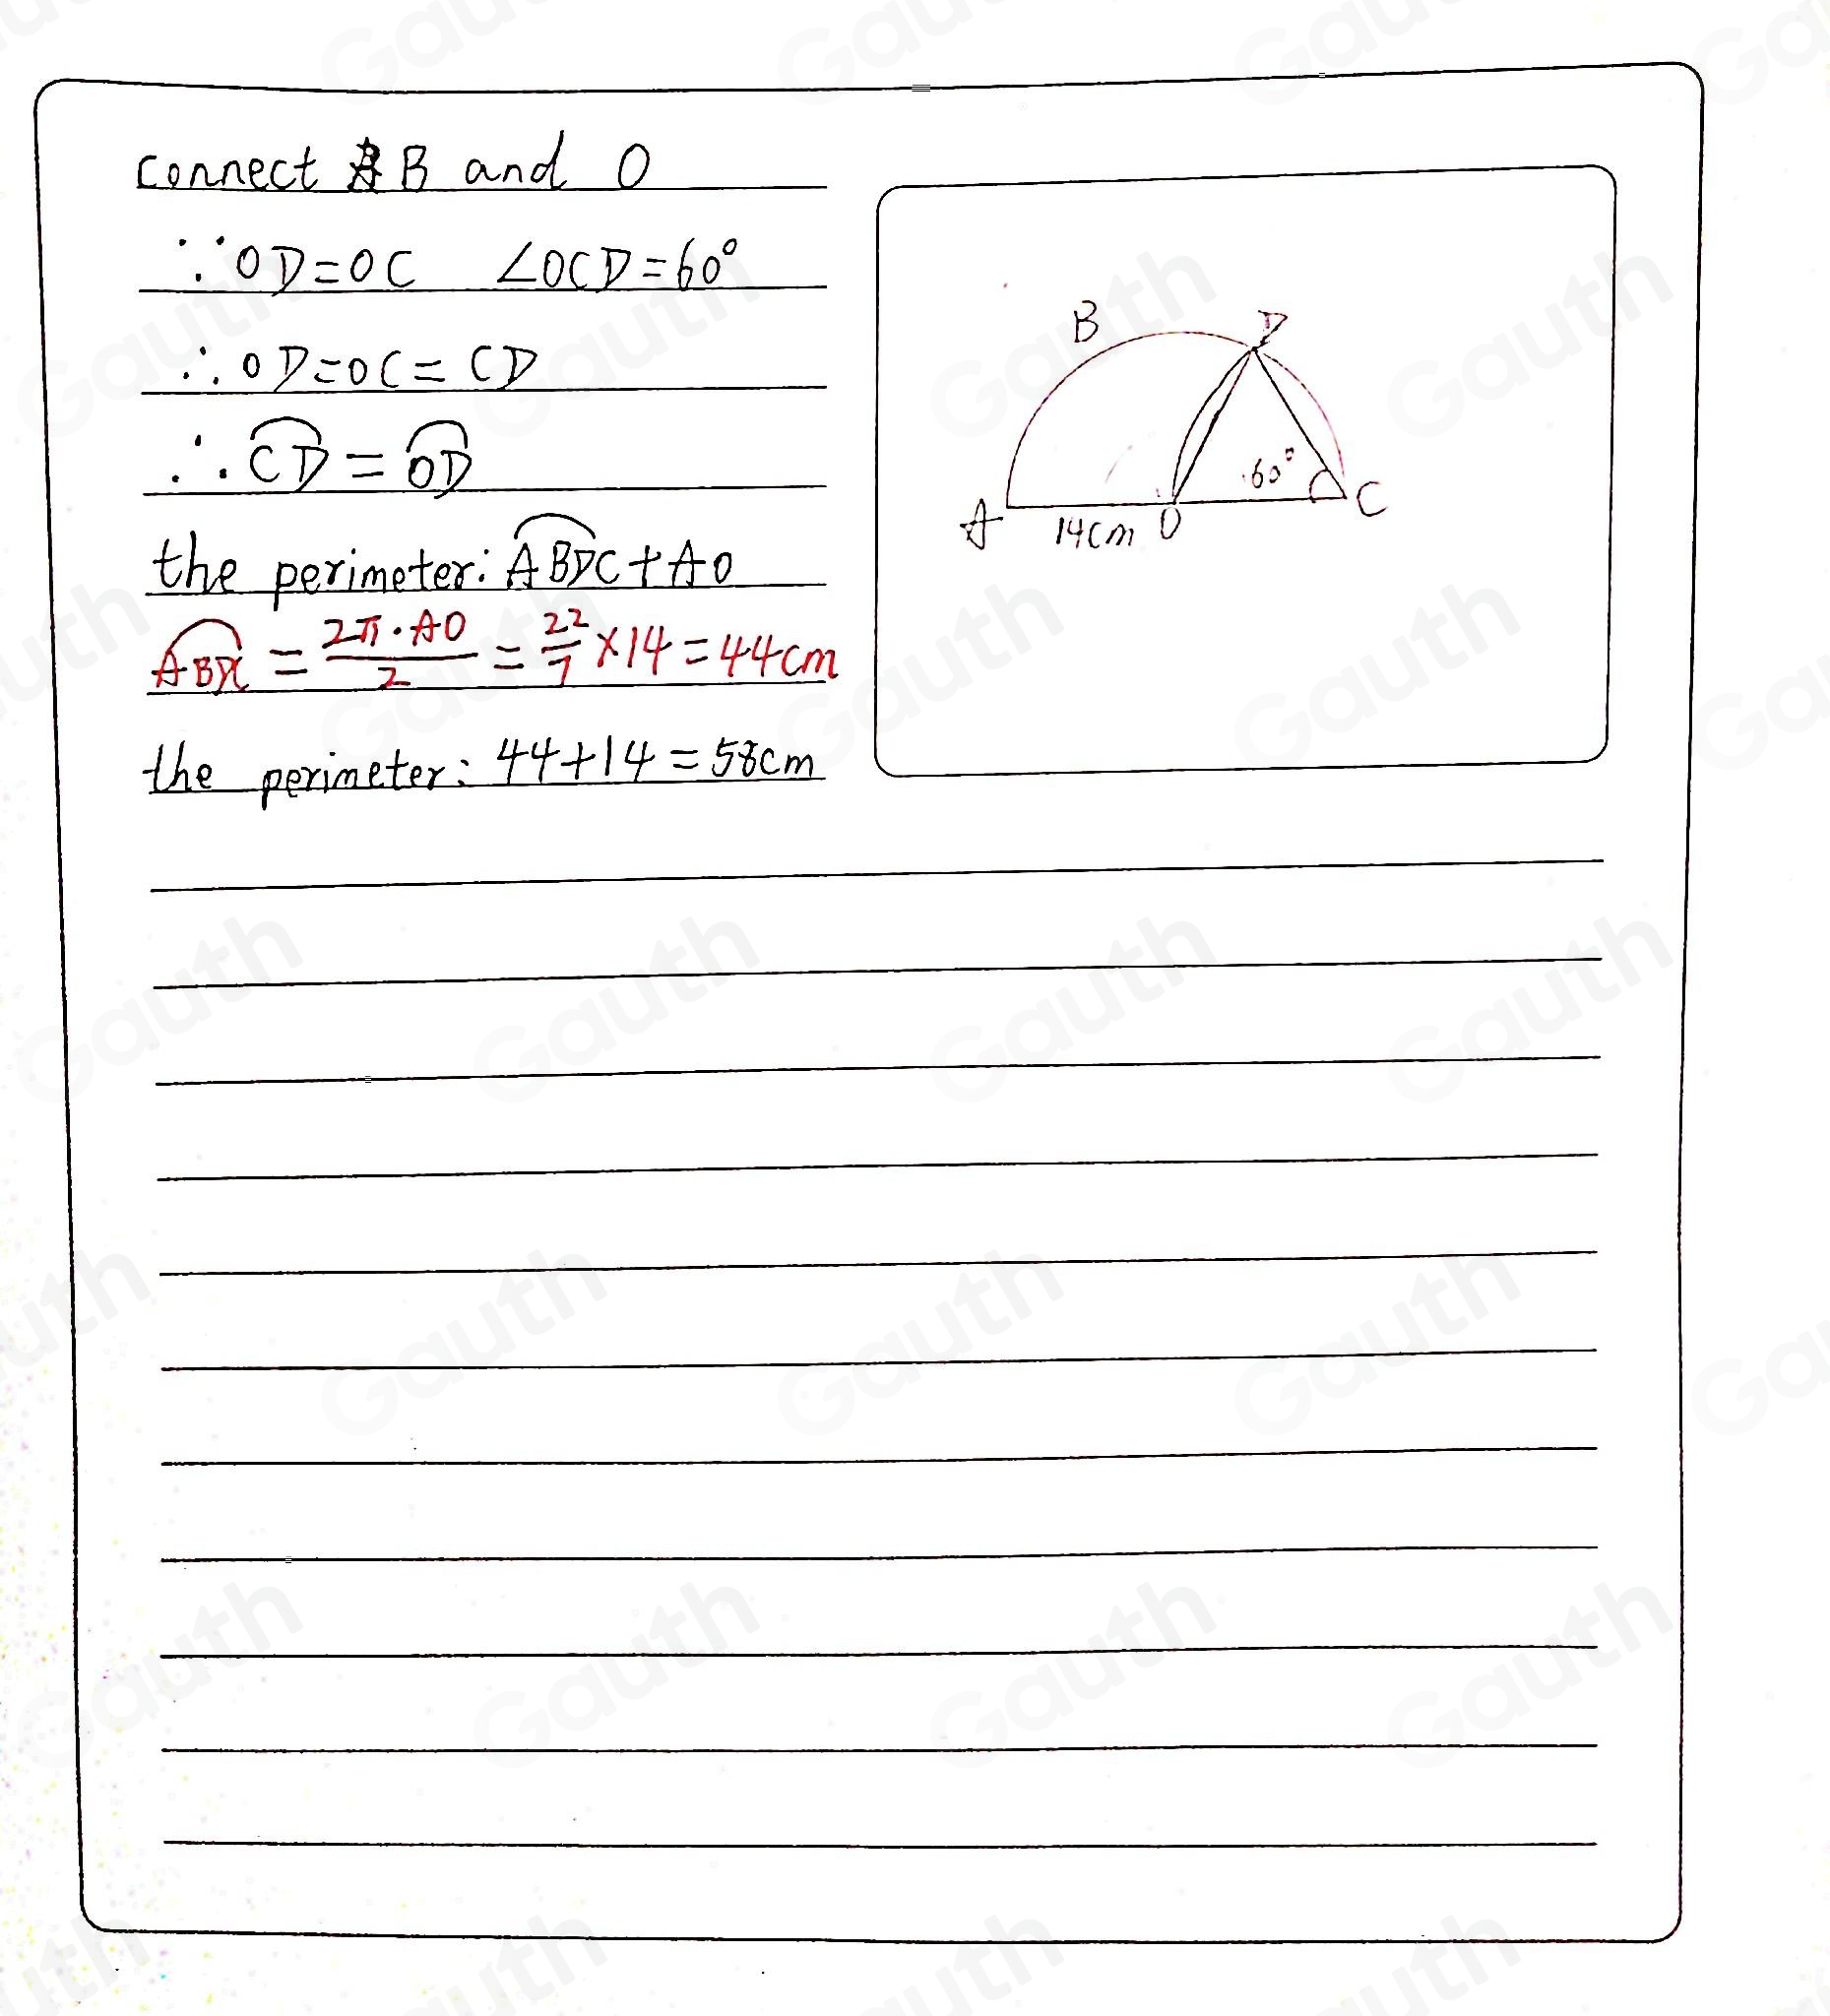 connect B and O
∵ OD=OC ∠OCD=60°
∴ OD=OC=CD
∴ ⌒CD = ⌒OD
the perimeter: ⌒ABDC+AO
⌒ABDC = 2π·AO/2 = 22/7 ×14=44cm
the perimeter: 44+14=58cm
B
D
60°
A
14cm
O
C
Gauth